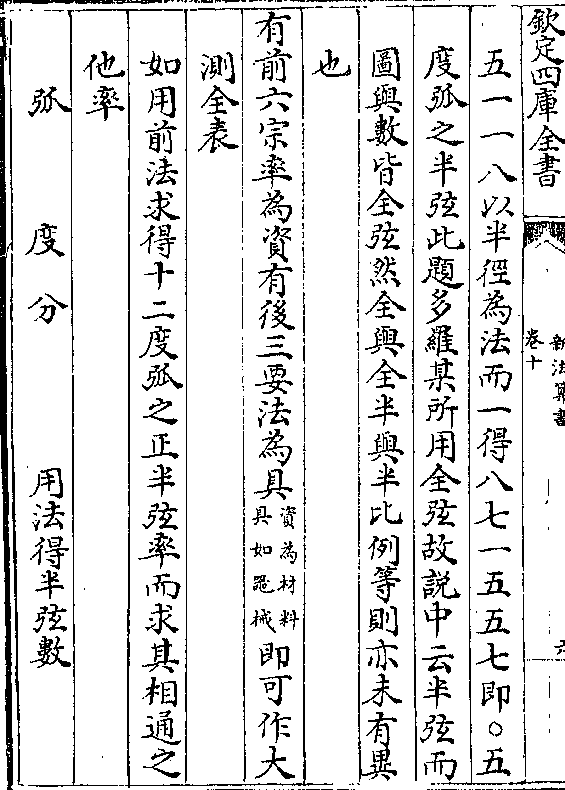 欽定四庫全書
新法算書
卷十
六
五一一八以半徑為法而一得八七一五五七即〇五
度弧之半弦此題多羅某所用全弦故説中云半弦而
圖與數皆全弦然全與全半與半比例等則亦未有異
也
有前六宗率為資有後三要法為具資為材料具如噐械即可作大
測全表
如用前法求得十二度弧之正半弦率而求其相通之
他率
弧　度　分　用法得半弦數